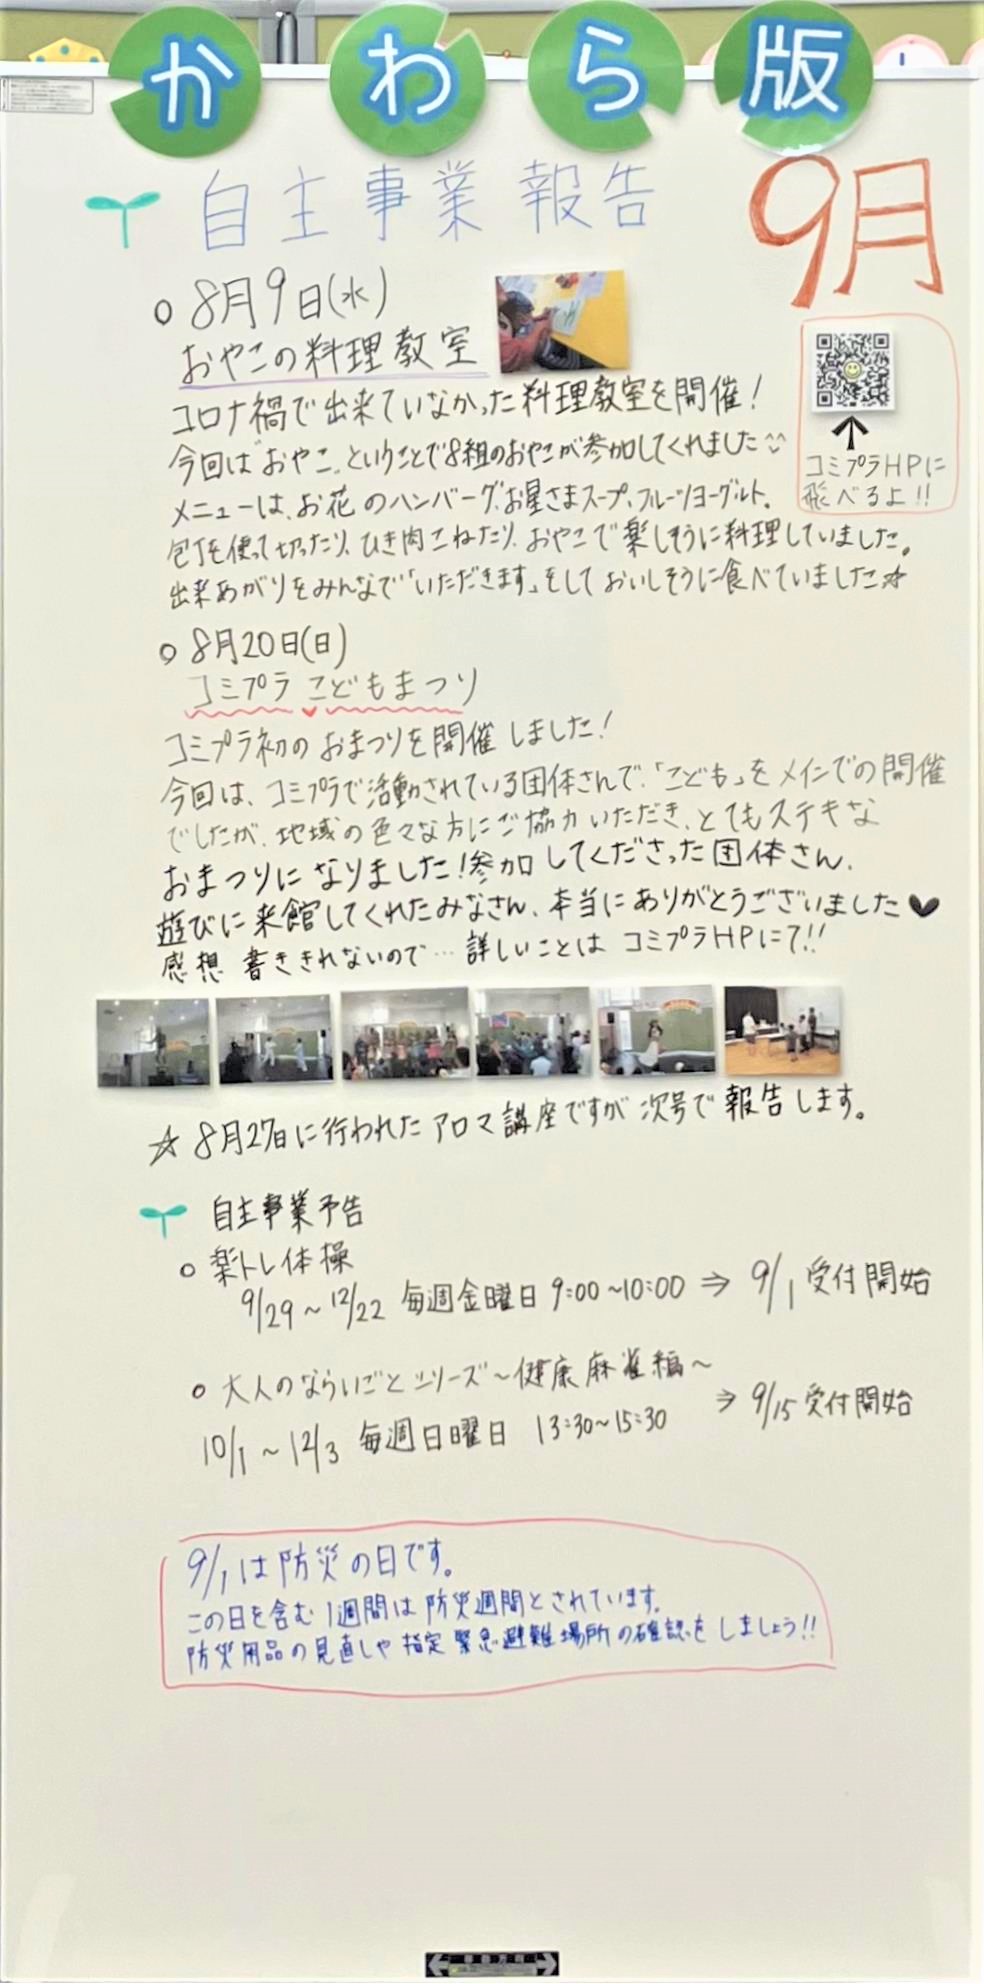 かわら版
自主事業報告
9月
○ 8月9日(水)
おやこの料理教室
コロナ禍で出来ていなかった料理教室を開催!
今回は"おやこ"ということで8組のおやこが参加してくれました
メニューは、お花のハンバーグ、お星さまスープ、フルーツヨーグルト。
包丁を使って切ったり、ひき肉こねたり、おやこで楽しそうに料理していました。
出来あがりをみんなで「いただきます」をしておいしそうに食べていました☆
コミプラHPに
飛べるよ!!
○ 8月20日(日)
コミプラ こどもまつり
コミプラ初のおまつりを開催しました!
今回は、コミプラで活動されている団体さんで、「こども」をメインでの開催
でしたが、地域の色々な方にご協力いただき、とてもステキな
おまつりになりました!参加してくださった団体さん、
遊びに来館してくれたみなさん、本当にありがとうございました♥
感想 書ききれないので…詳しいことは コミプラHPにて!!
☆ 8月27日に行われたアロマ講座ですが次号で報告します。
自主事業予告
○ 楽トレ体操
9/29～12/22 毎週金曜日 9:00～10:00 ⇒ 9/1 受付開始
○ 大人のならいごとシリーズ～健康麻雀編～
10/1～12/3 毎週日曜日 13:30～15:30 ⇒ 9/15 受付開始
9/1は防災の日です。
この日を含む1週間は防災週間とされています。
防災用品の見直しや指定緊急避難場所の確認をしましょう!!